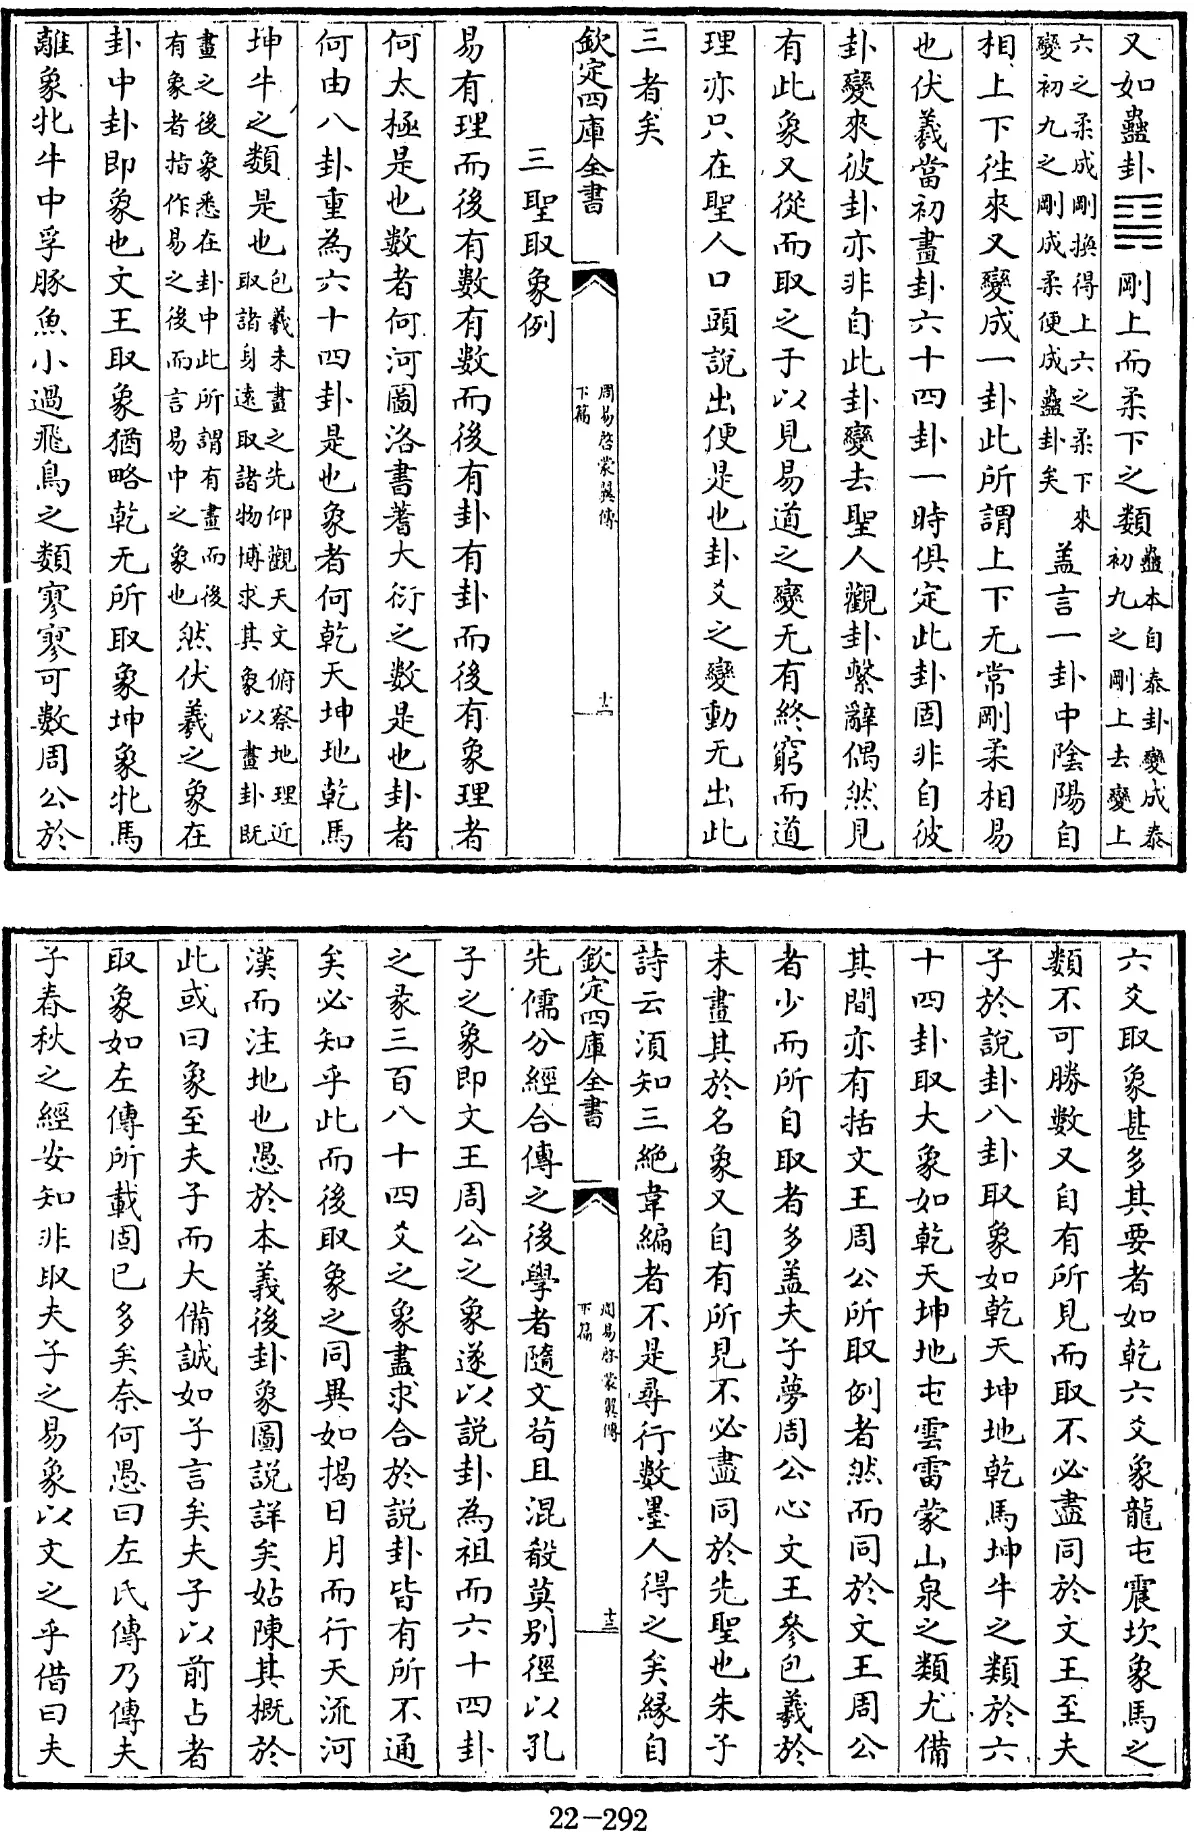 又如蠱卦䷑剛上而柔下之類蠱本自泰卦變成泰
初九之剛上去變上
六之柔成剛換得上六之柔下來
變初九之剛成柔便成蠱卦矣盖言一卦中陰陽自
相上下徃來又變成一卦此所謂上下无常剛柔相易
也伏羲當初畫卦六十四卦一時俱定此卦固非自彼
卦變來彼卦亦非自此卦變去聖人觀卦繫辭偶然見
有此象又從而取之于以見易道之變无有終窮而道
理亦只在聖人口頭說出便是也卦爻之變動无出此
三者矣
欽定四庫全書
周易啓蒙翼傳
下篇
十二
三聖取象例
易有理而後有數有數而後有卦有卦而後有象理者
何太極是也數者何河圖洛書蓍大衍之數是也卦者
何由八卦重為六十四卦是也象者何乾天坤地乾馬
坤牛之類是也包羲未畫之先仰觀天文俯察地理近
取諸身遠取諸物博求其象以畫卦既
畫之後象悉在卦中此所謂有畫而後
有象者指作易之後而言易中之象也然伏羲之象在
卦中卦即象也文王取象猶略乾无所取象坤象牝馬
離象牝牛中孚豚魚小過飛鳥之類寥寥可數周公於
六爻取象甚多其要者如乾六爻象龍屯震坎象馬之
類不可勝數又自有所見而取不必盡同於文王至夫
子於說卦八卦取象如乾天坤地乾馬坤牛之類於六
十四卦取大象如乾天坤地屯雲雷蒙山泉之類尤備
其間亦有括文王周公所取例者然而同於文王周公
者少而所自取者多盖夫子夢周公心文王參包羲於
未畫其於名象又自有所見不必盡同於先聖也朱子
詩云須知三絶韋編者不是尋行數墨人得之矣緣自
欽定四庫全書
周易啓蒙翼傳
下篇
十三
先儒分經合傳之後學者隨文苟且混殽莫別徑以孔
子之象即文王周公之象遂以說卦為祖而六十四卦
之彖三百八十四爻之象盡求合於說卦皆有所不通
矣必知乎此而後取象之同異如揭日月而行天流河
漢而注地也愚於本義後卦象圖説詳矣姑陳其概於
此或曰象至夫子而大備誠如子言矣夫子以前占者
取象如左傳所載固已多矣奈何愚曰左氏傳乃傳夫
子春秋之經安知非取夫子之易象以文之乎借曰夫
22-292